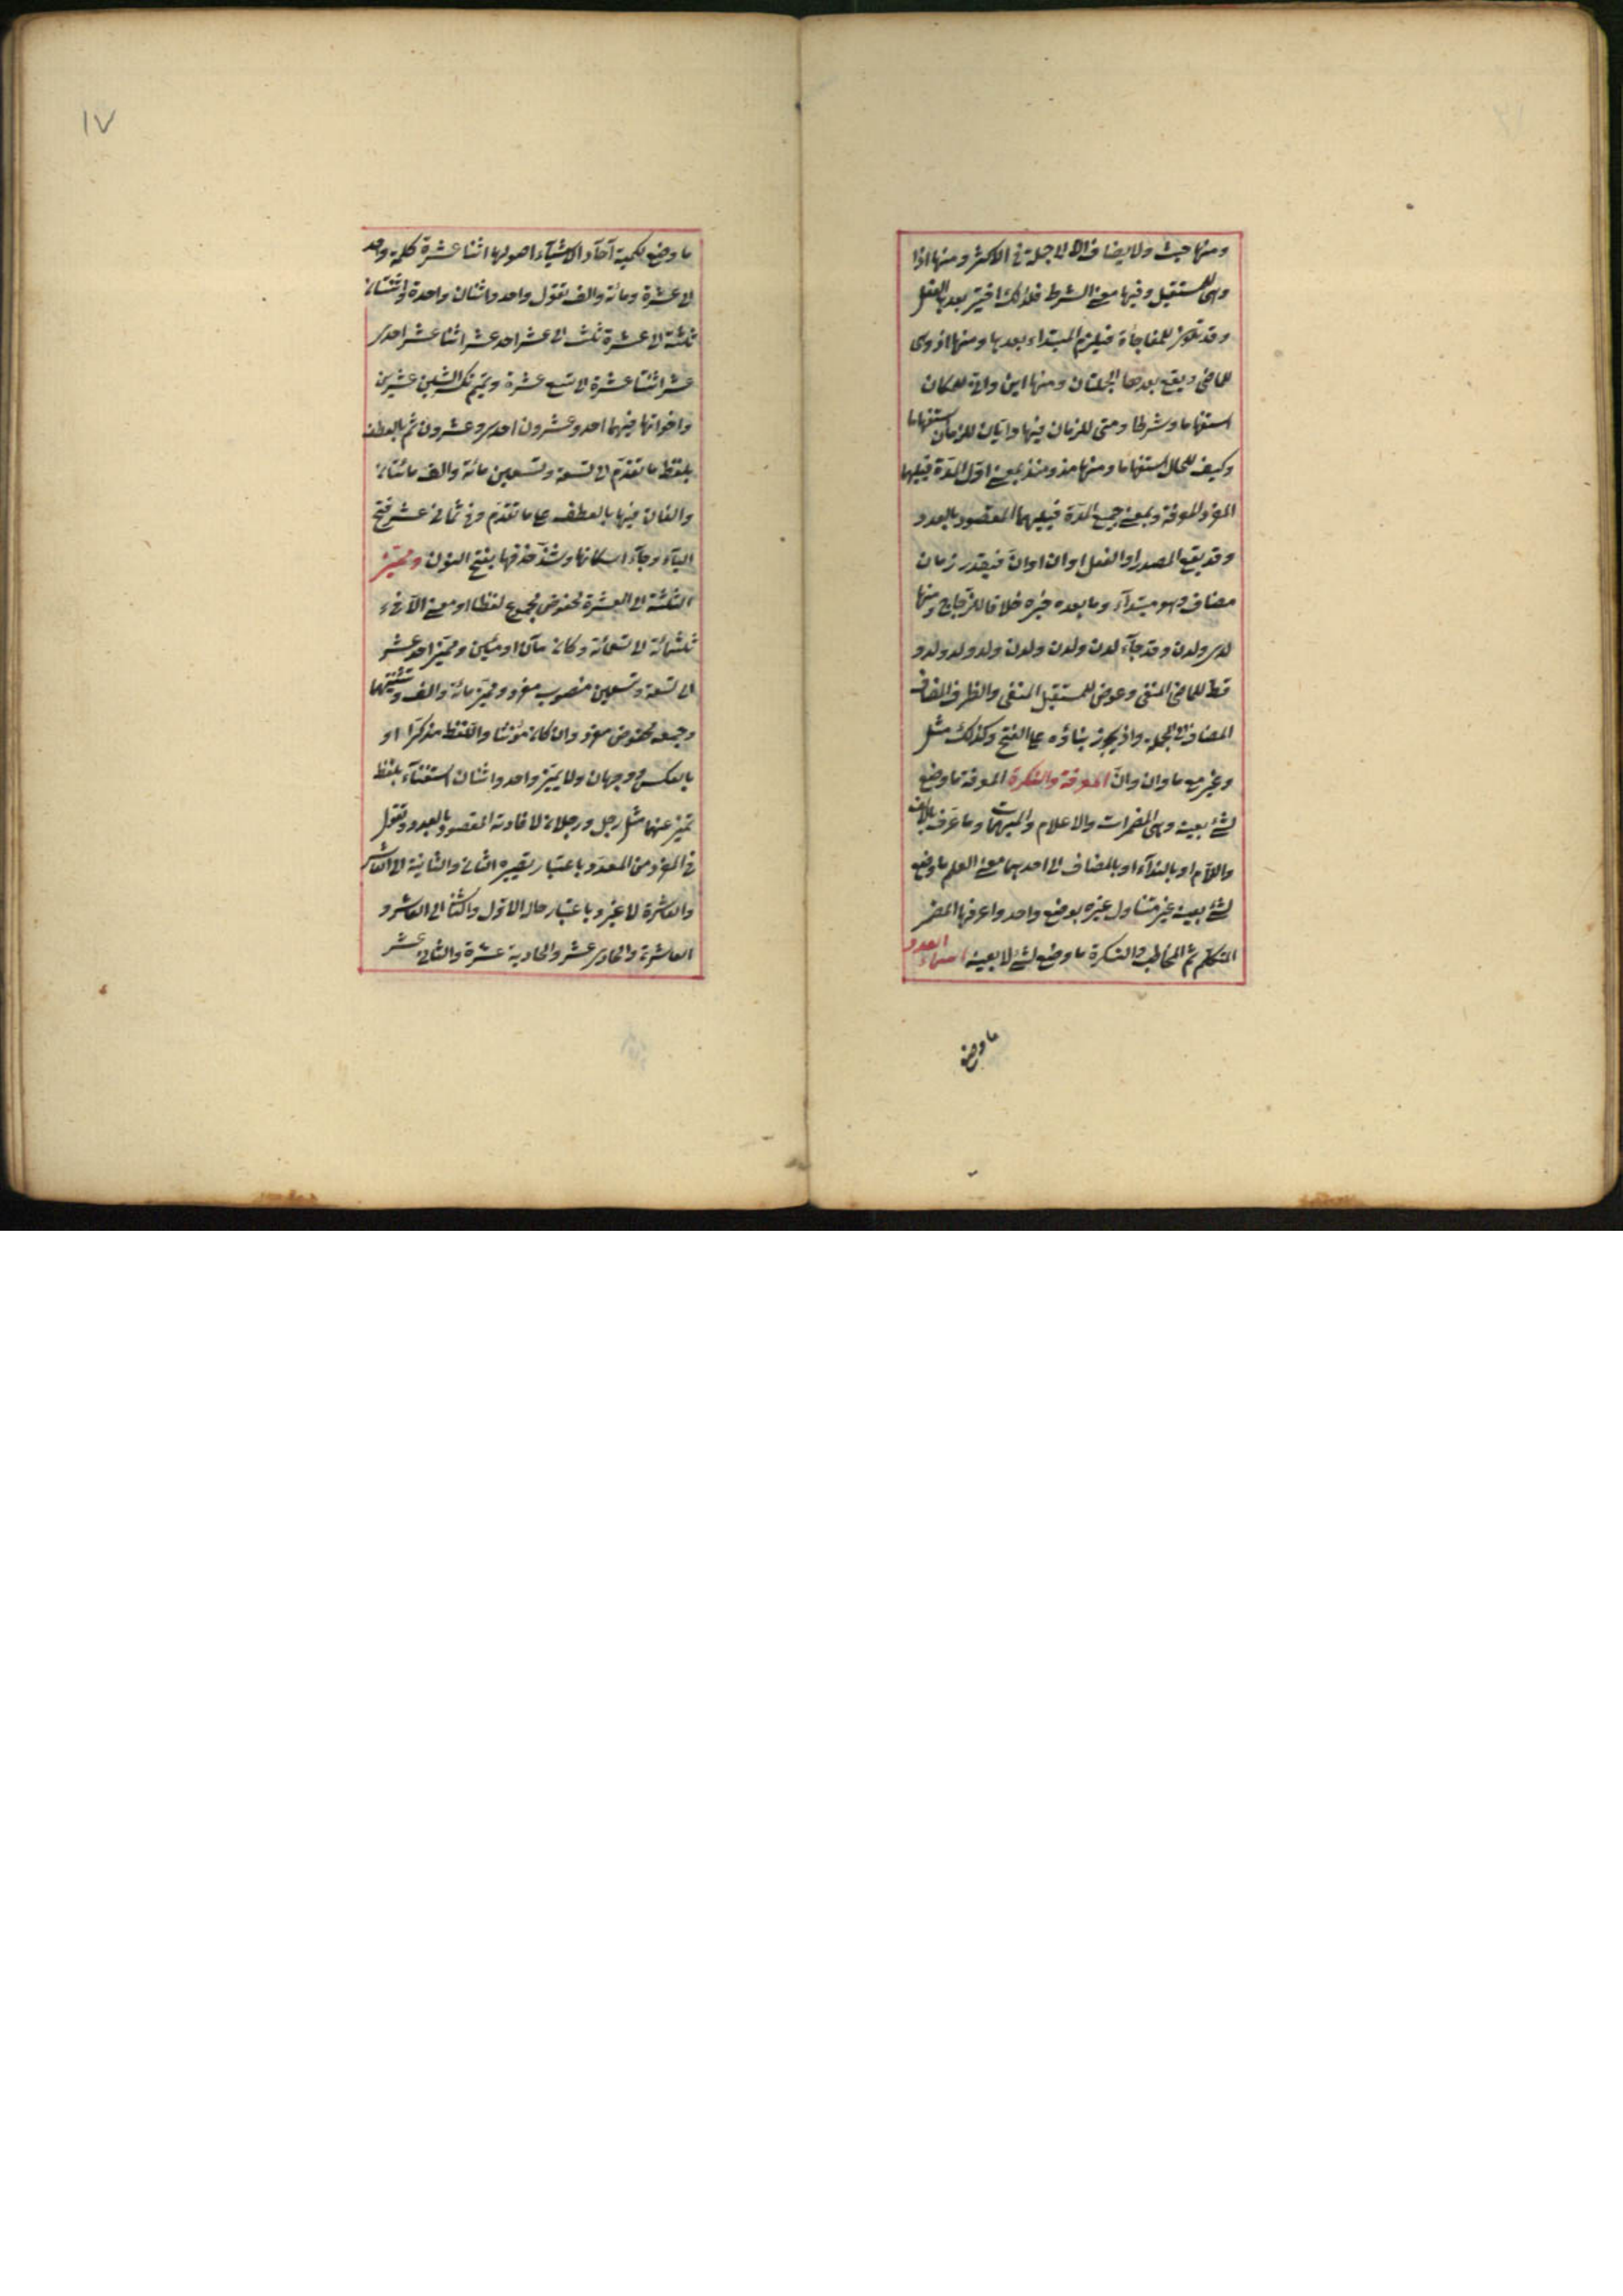 ومنها حيث ولا يضاف الا الى جملة فى الاكثر ومنها اذا
وهى للمستقبل وفيها معنى الشرط فلذلك اختير بعدها الفعل
وقد تكون للمفاجأة فيلزم المبتداء بعدها ومنها اذ وهى
للماضى ويقع بعدها الجملتان ومنها اين وانى للمكان
استفهاما وشرطا ومتى للزمان فيها وايان للزمان استفهاما
وكيف للحال استفهاما ومنها مذ ومنذ بمعنى اول المدة فيليها
المفرد المعرفة وبمعنى جميع المدة فيليهما المقصود بالعدد
وقد يقع المصدر او الفعل او ان او انّ فيقدر زمان
مضاف وهو مبتدآء وما بعده خبره خلافا للزجاج ومنها
لدى ولدن وقد جآء لدن ولدن ولدن ولد ولد ولد و
قط للماضى المنفى وعوض للمستقبل المنفى والظروف المضاف
المضاف الى الجملة واذ يجوز بناؤه على الفتح وكذلك مثل
وغير مع ما وان وانّ المعرفة والنكرة المعرفة ما وضع
لشئ بعينه وهى المضمرات والاعلام والمبهمات وما عرف بالالف
واللام او بالندآء او بالمضاف الى احدهما معنى العلم ما وضع
لشئ بعينه غير متناول غيره بوضع واحد واعرفها المضمر
المتكلم ثم المخاطب والنكرة ما وضع لشئ لا بعينه اسماء العدد
ما وضع
١٧
ما وضع لكمية آحآد الاشيآء اصولها اثنا عشرة كلمة واحد
الى عشرة ومائة والف تقول واحد واثنان واحدة واثنتان
ثلثة الى عشرة ثلث الى عشر احد عشر اثنا عشر احدى
عشر اثنتا عشرة الى تسع عشرة وتميم تكسر الشين عشرين
واخواتها فيهما احد وعشرون احدى وعشرون ثم بالعطف
بلفظ ما تقدم الى تسعة وتسعين مائة والف مائتان
والفان فيها بالعطف على ما تقدم وفى ثمانى عشر فتح
اليآء وجآء اسكانها وشذ حذفها بفتح النون ومميز
الثلثة الى العشرة مخفوض مجموع لفظا او معنى الا فى
ثلثمائة الى تسعمائة وكان مآت او مئين ومميز احد عشر
الى تسعة وتسعين منصوب مفرد ومميز مائة والف وتثنيتهما
وجمعه مخفوض مفرد وان كان مؤنثا واللفظ مذكرا او
بالعكس فوجهان ولا يميز واحد واثنان استغنآء بلفظ
تميز عنهما مثل رجل ورجلان لافادته المقصود بالعدد وتقول
فى المفرد من المعدد باعتبار تصييره الثانى والثانية الى العاشر
والعاشرة لا غير وباعتبار حاله الاول والثانى الى العاشر و
العاشرة والحادى عشر والحادية عشرة والثانى عشر